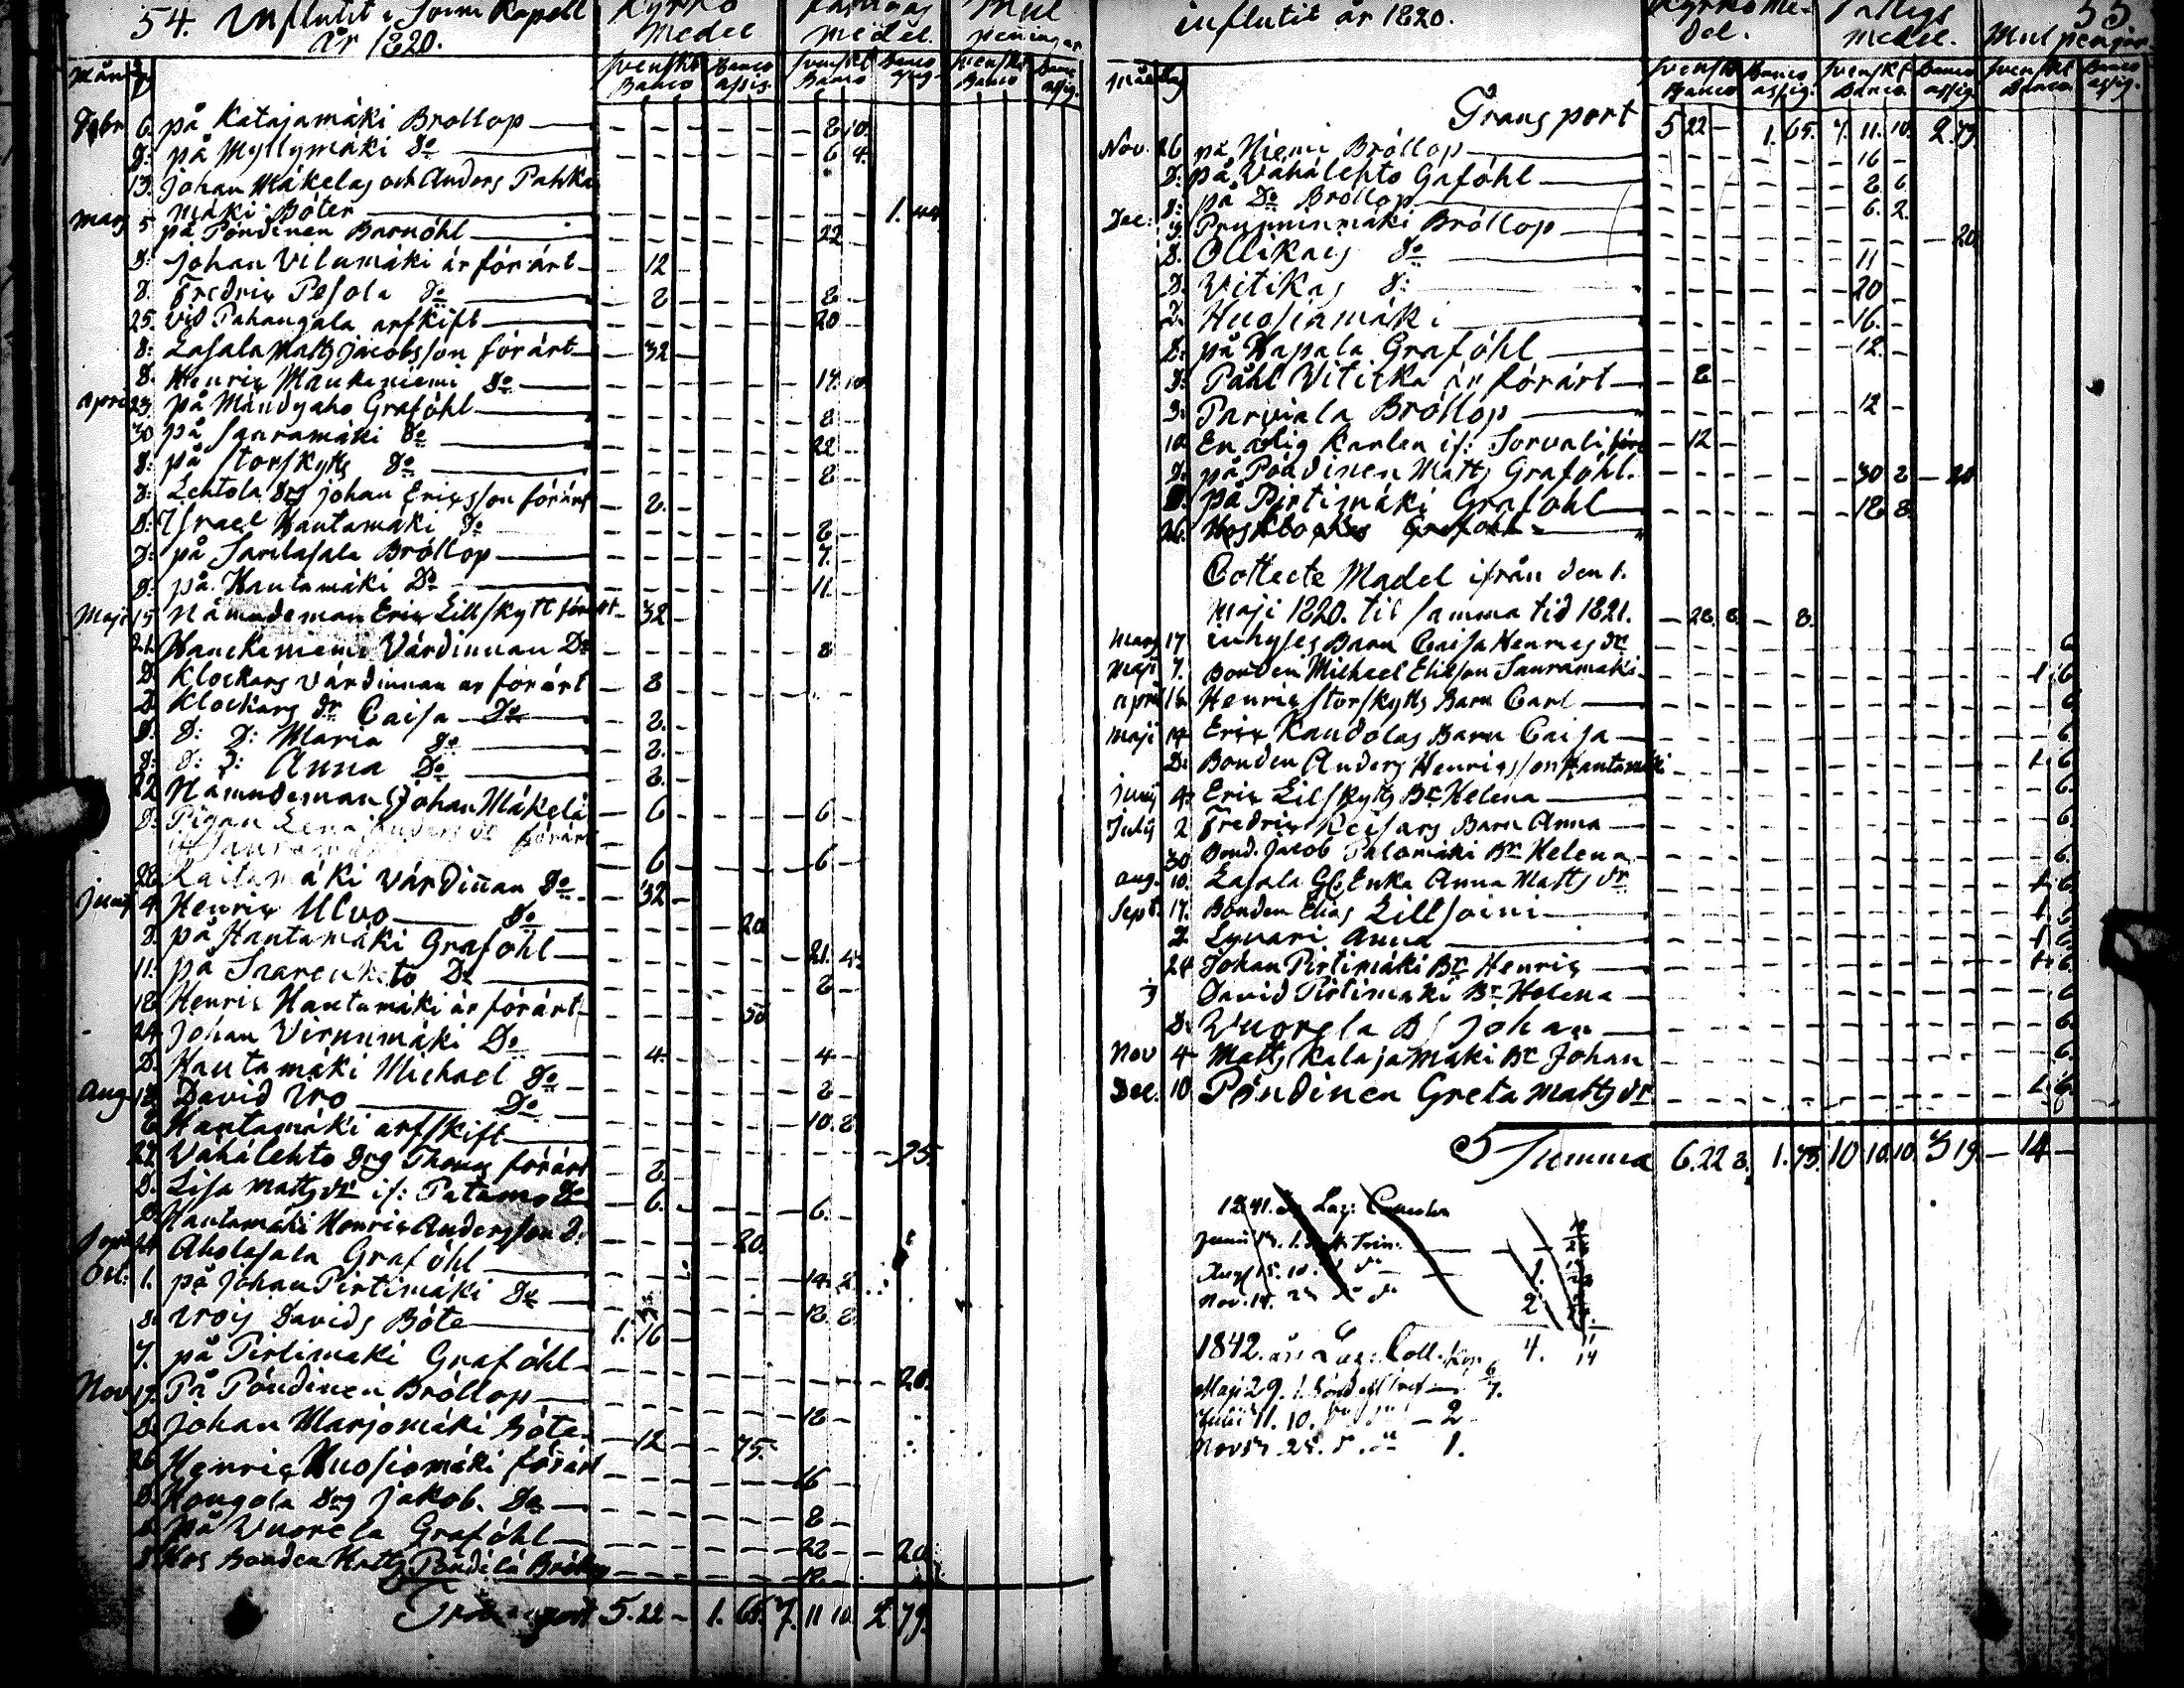 54. Influtit i Soini Kapell
år 1820.
Kyrko Medel
Fattigs medel.
Mul peningar
Svenskt Banco
Banco assig.
Svenskt Banco
Banco assig
Svenskt Banco
Banco assig.
Mån
Febr 6. på Katajamäki Bröllop — 8 10.
D: på Myllymäki Do — 6 4.
13. Johan Mäkelas och Anders Pahka
mäki Böter — 1. 44
Mars 5 på Pöndinen Barnöhl — 22
D: Johan Vilumäki är förärt — 12 -
D. Fredric Pesola Do — 8 — 8 -
25. vid Pahangala arfskift — 20 -
D: Lasala Matts Jacobsson förärt — 32 -
D. Henric Maukaniemi Do — 14. 10
April 23. på Mändyaho Graföhl — 8 -
30 på Sauramäki Do — 22 -
D: på Storskytts Do — 8 -
D: Lehtola Drg Johan Ericsson förärt — 8. -
D: Israel Hautamäki Do — 8 -
D: på Sarilasala Bröllop — 7. -
D: på Hautamäki Do — 11. -
Maji 15 Nämndeman Eric Lillskytt förärt — 32 -
21. Hanckaniemi Värdinnan Do — 8
D. Klockars värdinnan är förärt — 8
D. Klockars dr Caisa Do — 8. -
D: D: D: Maria Do — 8. -
D: D: D: Anna Do — 8. -
22 Nämndeman Johan Mäkelä — 6 — 6 -
D: Pigan Lena Anders dr förärt
— 6 — 6 -
28. Kaitamäki värdinan Do — 32 -
Junij 4 Henric Ulvo Do — 20
D. på Hautamäki Graföhl — 21. 4.
11. på Do — 8 -
18. Henric Hautamäki är förärt — 50
24 Johan Virnumäki Do — 4. — 4 -
D. Hautamäki Michael Do — 8 -
Aug. 12. David Uro Do — 10. 8.
Hautamäki arfskift — 25.
27 Vähälehto Drg Thomas förärt — 8.
D. Lisa Matts dr if: Patama Do — 6. — 6. -
D. Hautamäki Henric Andersson D: — 80.
Sept 24 Aholasala Graföhl — 14. 2
Oct: 1. på Johan Pirtimäki Do — 18. 8.
D. Urois Davids Böte — 1. 16 -
7. på Pirtimaki Graföhl — 20.
Nov 12. På Pöndinen Bröllop — 18 -
D. Johan Marjomäki Böte — 12 — 75.
26 Henric Huosiomäki förärt — 16
D. Kongola Drg Jakob. Do — 8 -
D. på Vuorela Graföhl — 22 — 20.
D. Hos Bonden Matts Pöndilä Bröllop — 12 -
Transport 5. 22 - 1. 65. 7. 11 10. 2 79.
influtit år 1820.
Kyrko Me-del.
Fattigs medel.
Mul penjar
55.
Svenskt Banco
Banco assig.
Svenskt Banco.
Banco assig
Svenskt Banco
Banco assig.
Månad Dag
Transport 5 22 - 1. 65. 7. 11. 10. 2. 79.
Nov. 26 på Niemi Bröllop — 16 -
D: på Vähälehto Graföhl — 8 6
D: på Do Bröllop — 6. 2.
Dec: 3 Pruminmäki Bröllop — 20
D. Ollikas Do — 11 -
D. Vitikas D: — 20 -
D. Huosiamäki — 16. -
D: på Kapala Graföhl — 12. -
D: Påhl Vitikka är förärt — 8 -
D. Parviala Bröllop — 12 -
10. En ärlig Karlen if: Sorvali förä — 12 -
D. på Pöndinen Matts Graföhl. — 30 2 — 20
D: på Pirtimäki Graföhl — 18 8
26. Hos Klockars Graföhl
Collecte Madel ifrån den 1.
Maji 1820. til samma tid 1821. — 28. 8. — 8.
Mars 17 inhyses Barn Caisa Henrics dr — 6
Maji 7. Bonden Michael Eliasson Sauramäki — 1. 6
April 16. Henric Storskytts Barn Carl — 6
Maji 14 Eric Kandolas Barn Caisa — 6.
D: Bonden Anders Henricsson Hautamäki — 1. 6
Junij 4. Eric Lilskytts Br Helena — 6.
Julij 2 Fredric Keisars Barn Anna — 6.
30 Bond. Jacob Palomäki Br Helena — 6.
Aug. 10. Lasala Gl. Enka Anna Matts dr — 1. 6.
Sept. 17. Bonden Elias Lillsoini — 1. 6
D. Lyvari Anna — 1. 6
24 Johan Pirtimäki Br Henric — 6
David Pirtimäki Br Helena — 6
D. Vuorela Bs Johan — 6.
Nov 4 Matts Katajamäki Br Johan — 6.
Dec. 10 Pöndinen Greta Matts dr — 1. 6.
Summa 6. 22 8. 1. 73. 10 10. 10. 3 19. - 14 -
1842. 4. 14
Maji 29. 1. 7.
Julii 11. 10. - 2
Novbr 25. 1.